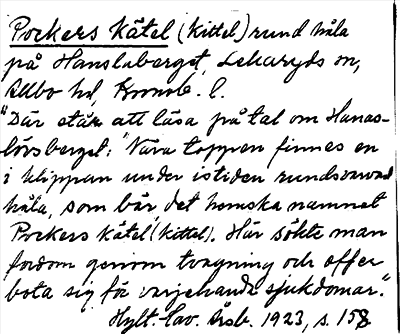 Pockers Kätel (Kittel) rund håla
på Hanslaberget, Lekaryds sn,
Allbo hd, Kronob. l.
"Där står att läsa på tal om Hanas-
lövsberget: "Nära toppen finnes en
i klippan under istiden rundsvarvad
håla, som bär det hemska namnet
Pockers Kätel (Kittel). Här sökte man
fordom genom tvagning och offer
bota sig för varjehanda sjukdomar."
Hylt.-Cav. Årsb. 1923, s. 158